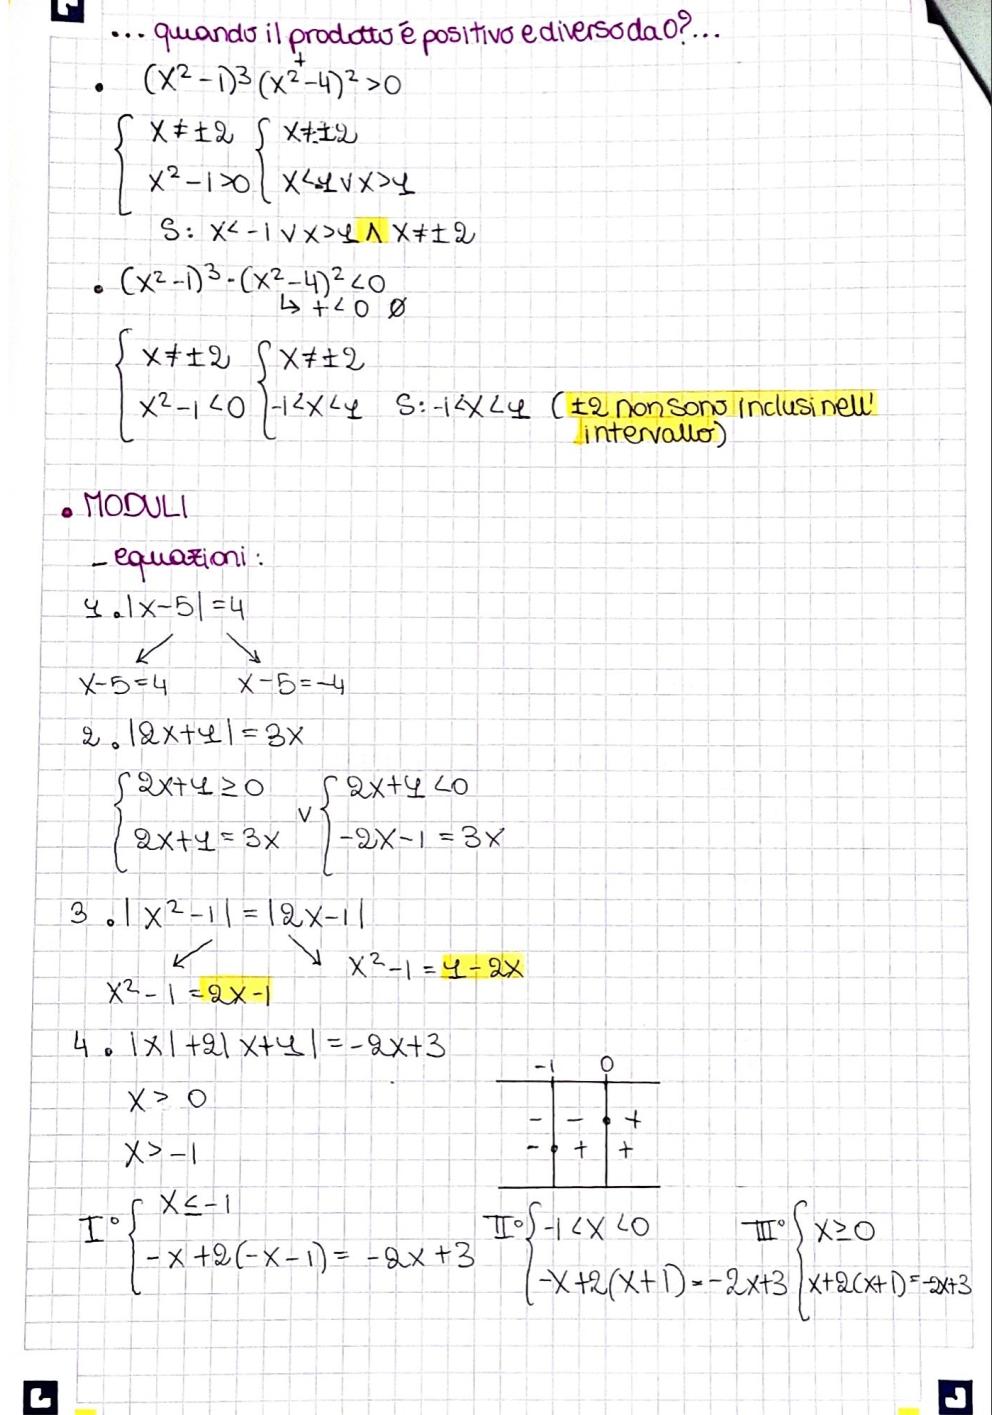 ... quando il prodotto è positivo e diverso da 0?...
• (x² - 1)³ (x² - 4)² > 0
+
{ x ≠ ±2 { x ≠ ±2
x² - 1 > 0 x < -1 ∨ x > 1
S: x < -1 ∨ x > 1 ∧ x ≠ ±2
• (x² - 1)³ · (x² - 4)² < 0
↳ + < 0 ∅
{ x ≠ ±2 { x ≠ ±2
x² - 1 < 0 -1 < x < 1 S: -1 < x < 1 (±2 non sono inclusi nell'
intervallo)
• MODULI
- equazioni:
1. |x - 5| = 4
x - 5 = 4 x - 5 = -4
2. |2x + 1| = 3x
{ 2x + 1 ≥ 0 ∨ { 2x + 1 < 0
2x + 1 = 3x -2x - 1 = 3x
3. |x² - 1| = |2x - 1|
x² - 1 = 1 - 2x
x² - 1 = 2x - 1
4. |x| + 2|x + 1| = -2x + 3
-1 0
x > 0
- - +
x > -1
- + +
I° { x ≤ -1 II° { -1 < x < 0 III° { x ≥ 0
-x + 2(-x - 1) = -2x + 3 -x + 2(x + 1) = -2x + 3 x + 2(x + 1) = -2x + 3